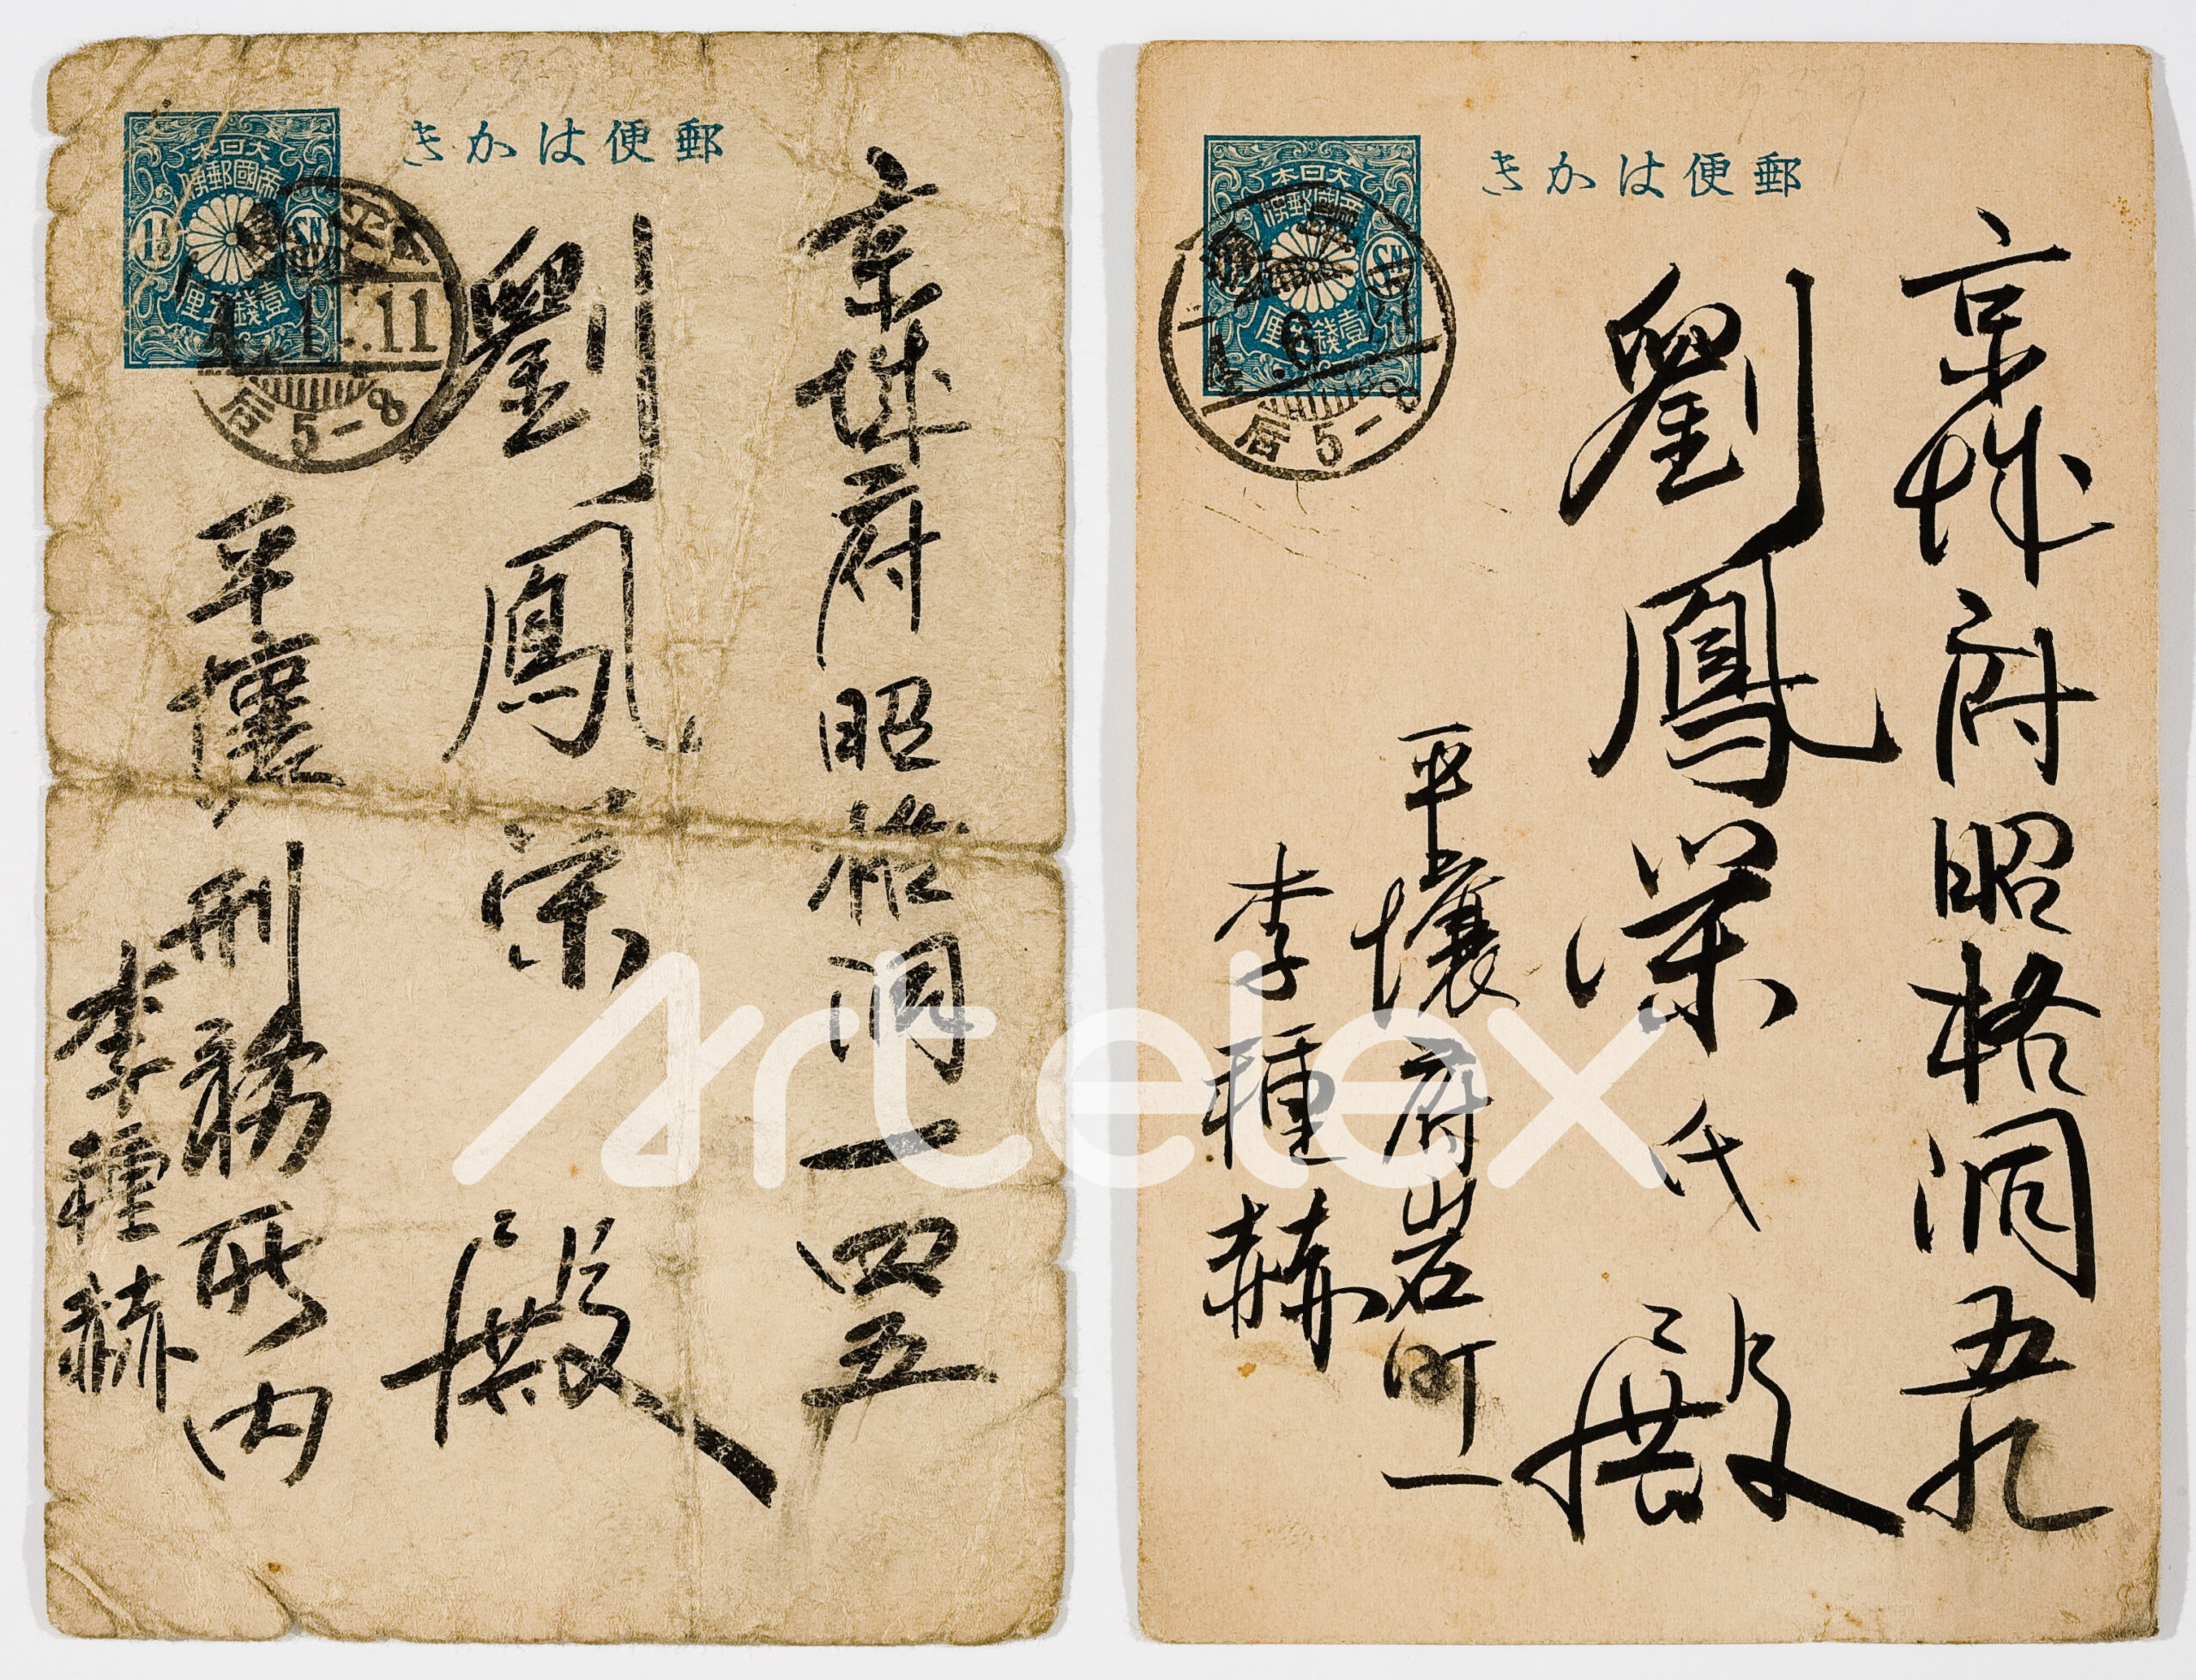 きかは便郵
大日本
帝國郵便
1½
SN
壹錢五里
平壤
4.1-.11
后5-8
京城府昭格洞一四五
劉鳳榮 殿
平壤刑務所内
李種赫
きかは便郵
大日本
帝國郵便
SN
壹錢五厘
4.6
后5-8
京城府昭格洞五九
劉鳳榮氏 殿
平壤府岩町一
李種赫
Artelex